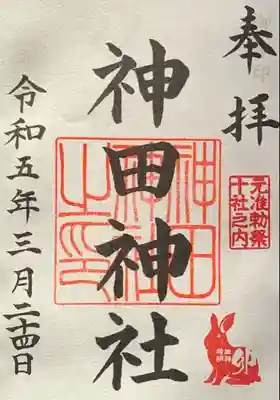 奉拝
元准勅祭
十社之内
神田神社
神田
神社
之印
卯
令和五年三月二十四日